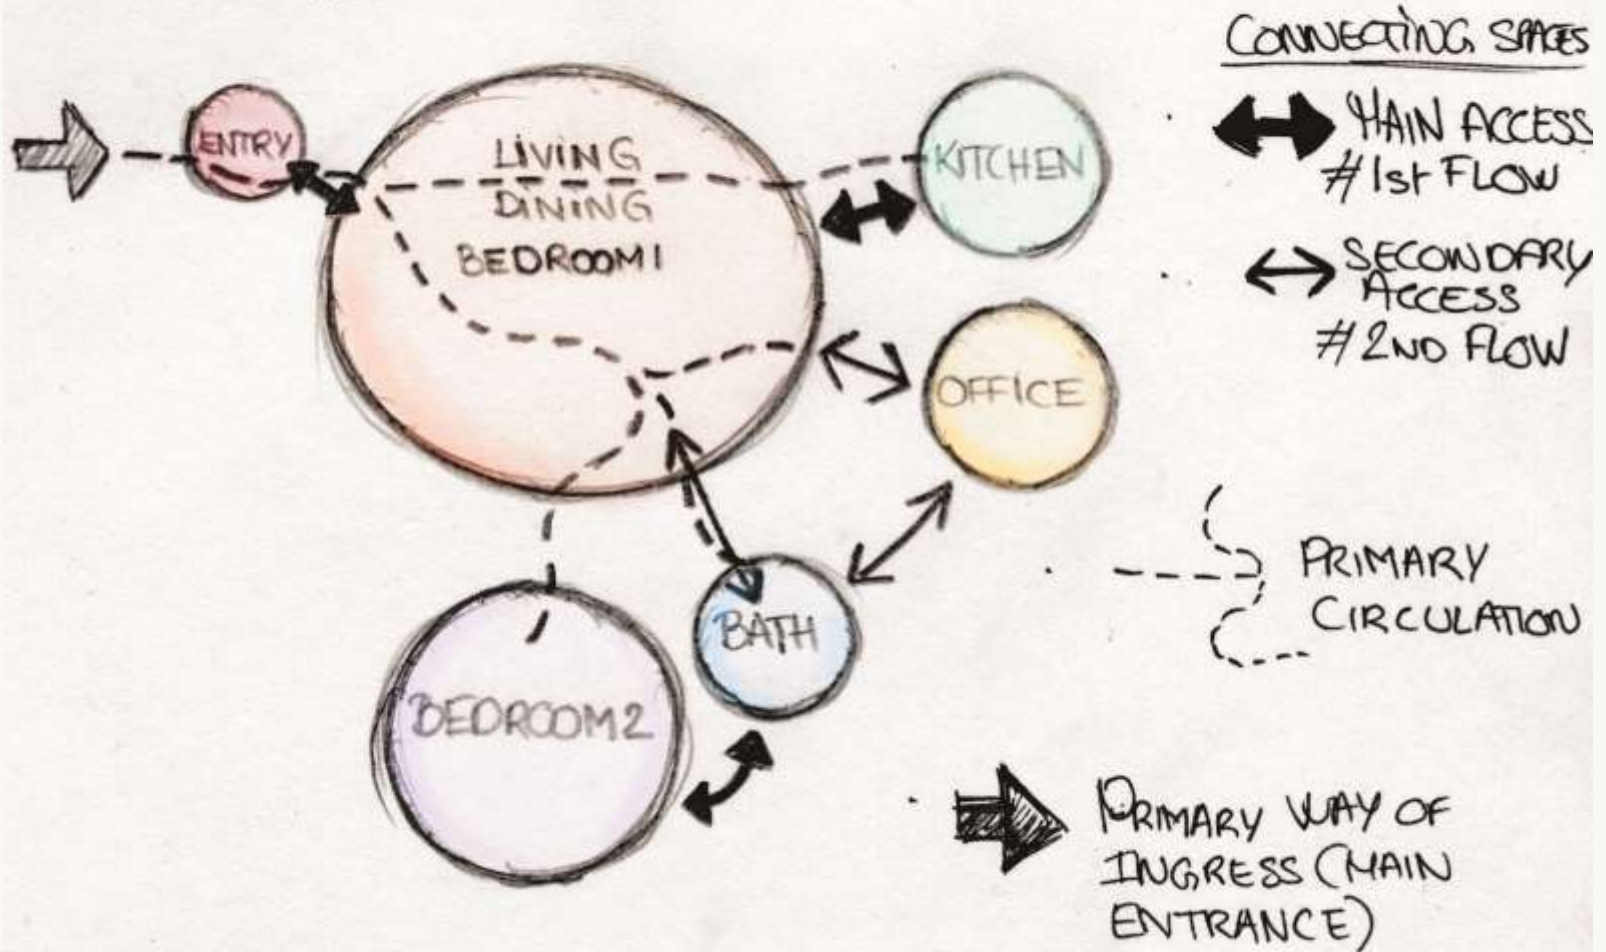 ENTRY
LIVING
DINING
BEDROOM1
KITCHEN
OFFICE
BATH
BEDROOM2
CONNECTING SPACES
MAIN ACCESS
#1st FLOW
SECONDARY
ACCESS
#2ND FLOW
PRIMARY
CIRCULATION
PRIMARY WAY OF
INGRESS (MAIN
ENTRANCE)